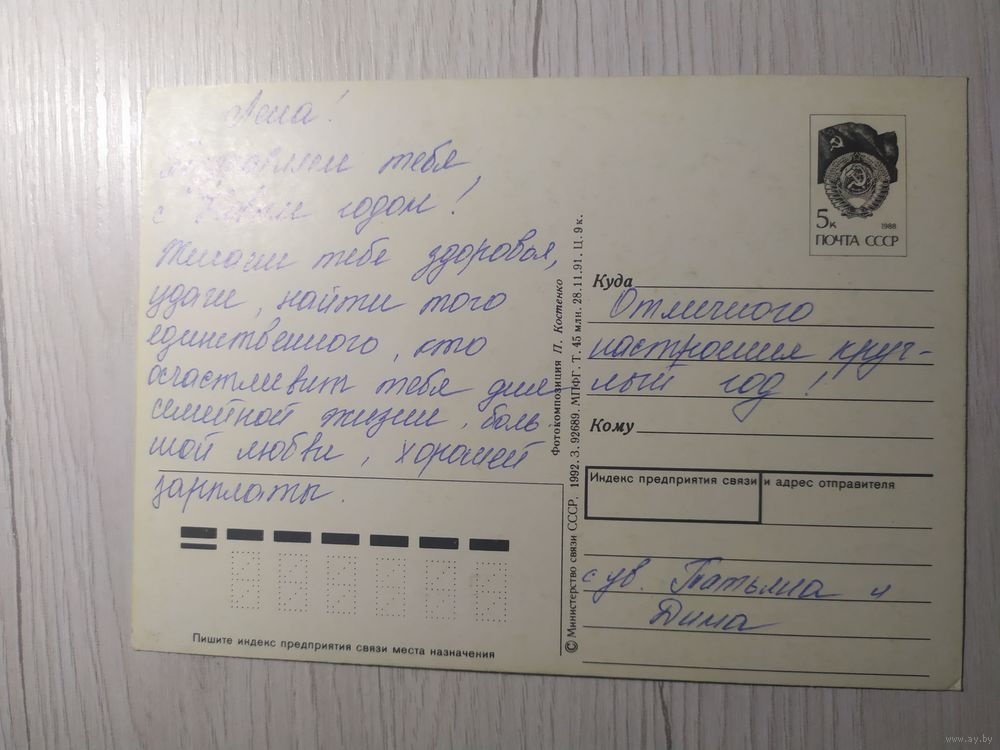 Лена!
Поздравляем тебя
с Новым годом!
Желаем тебе здоровья,
удачи, найти того
единственного, кто
осчастливит тебя для
семейной жизни, боль-
шой любви, хорошей
зарплаты.
Пишите индекс предприятия связи места назначения
Фотокомпозиция П. Костенко
© Министерство связи СССР. 1992. З. 92689. МПФГ. Т. 45 млн. 28.11.91. Ц. 9 к.
5к 1988
ПОЧТА СССР
Куда
Отличного
настроения круг-
лый год!
Кому
Индекс предприятия связи и адрес отправителя
с ув. Татьяна и
Дима
www.ay.by